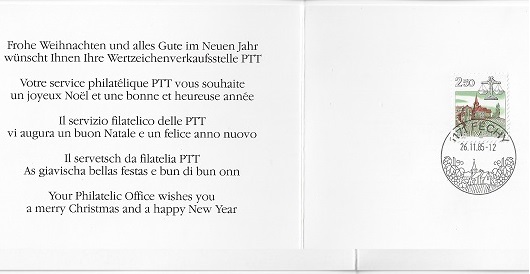 Frohe Weihnachten und alles Gute im Neuen Jahr
wünscht Ihnen Ihre Wertzeichenverkaufsstelle PTT
Votre service philatélique PTT vous souhaite
un joyeux Noël et une bonne et heureuse année
Il servizio filatelico delle PTT
vi augura un buon Natale e un felice anno nuovo
Il servetsch da filatelia PTT
As giavischa bellas festas e bun di bun onn
Your Philatelic Office wishes you
a merry Christmas and a happy New Year
250
1171 FÉCHY
26.11.85-12